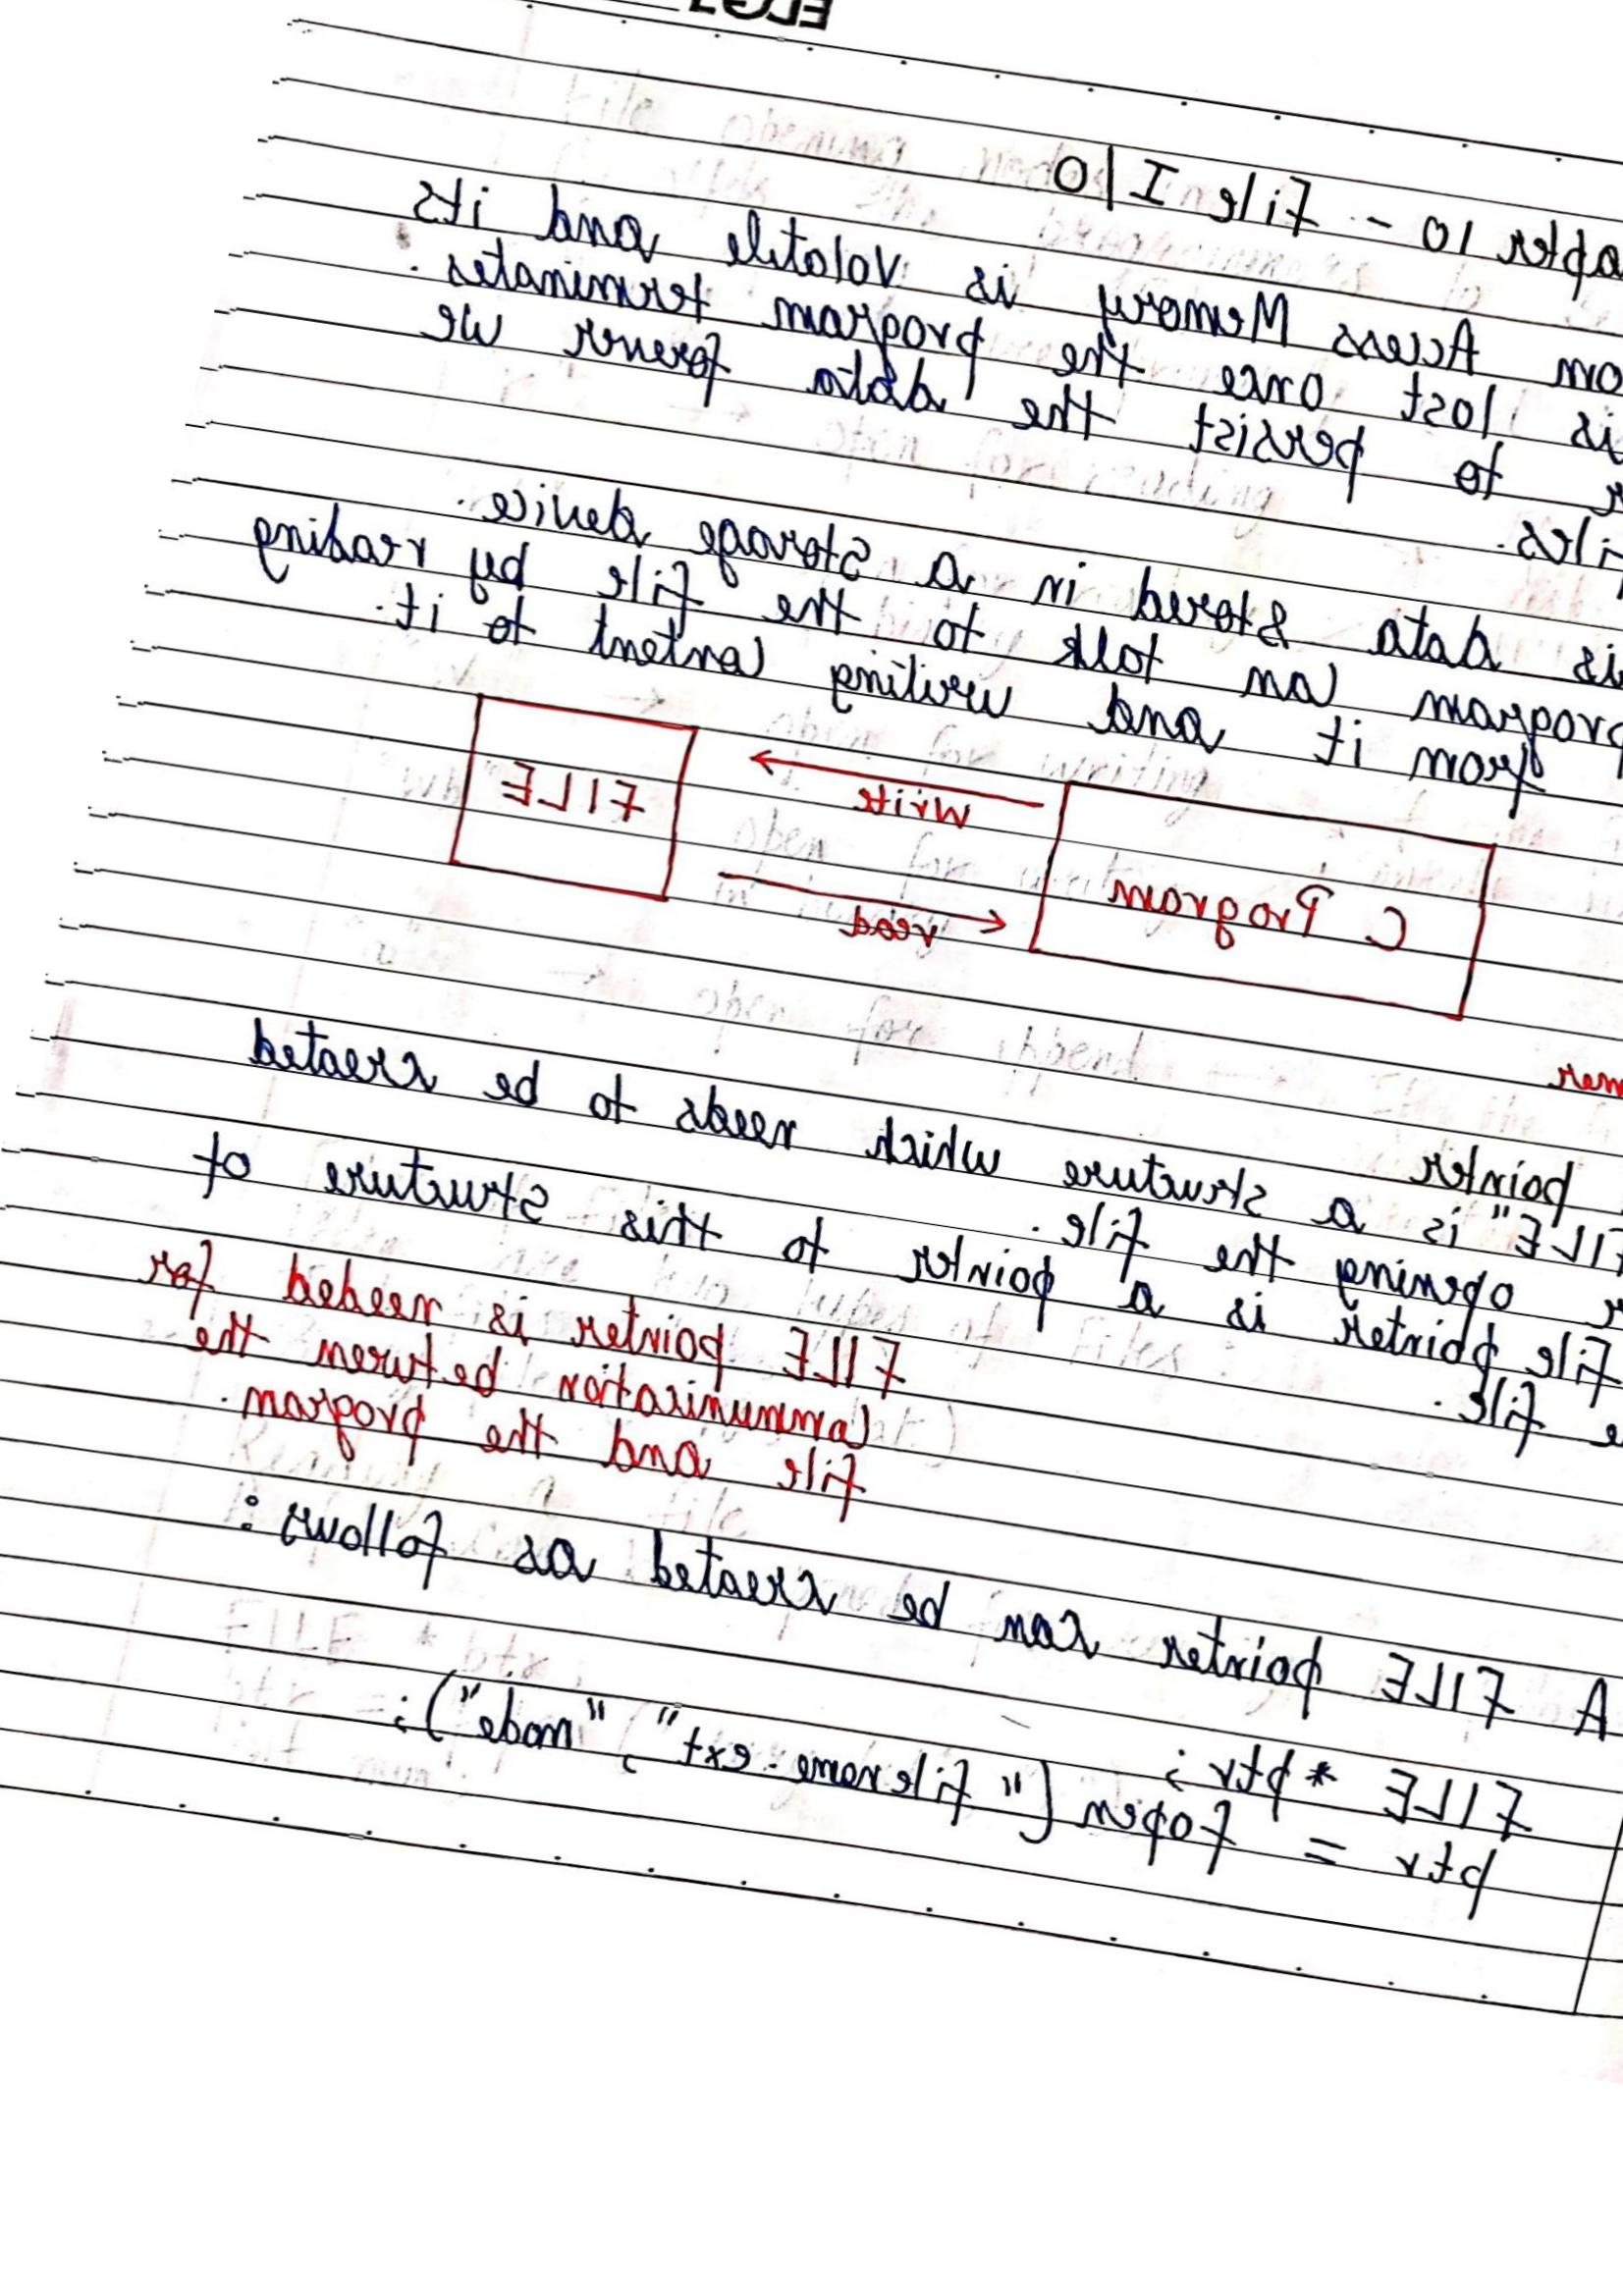 apter 10 - File I/O
om Access Memory is volatile and its
is lost once the program terminates.
r to persist the data forever we
iles.
is data stored in a storage device.
program can talk to the file by reading
from it and writing content to it.
C Program
write
read
FILE
pointer
FILE" is a structure which needs to be created
r opening the file.
file pointer is a pointer to this structure of
e file.
FILE pointer is needed for
communication between the
file and the program.
A FILE pointer can be created as follows:
FILE *ptr;
ptr = fopen ("filename.ext", "mode");